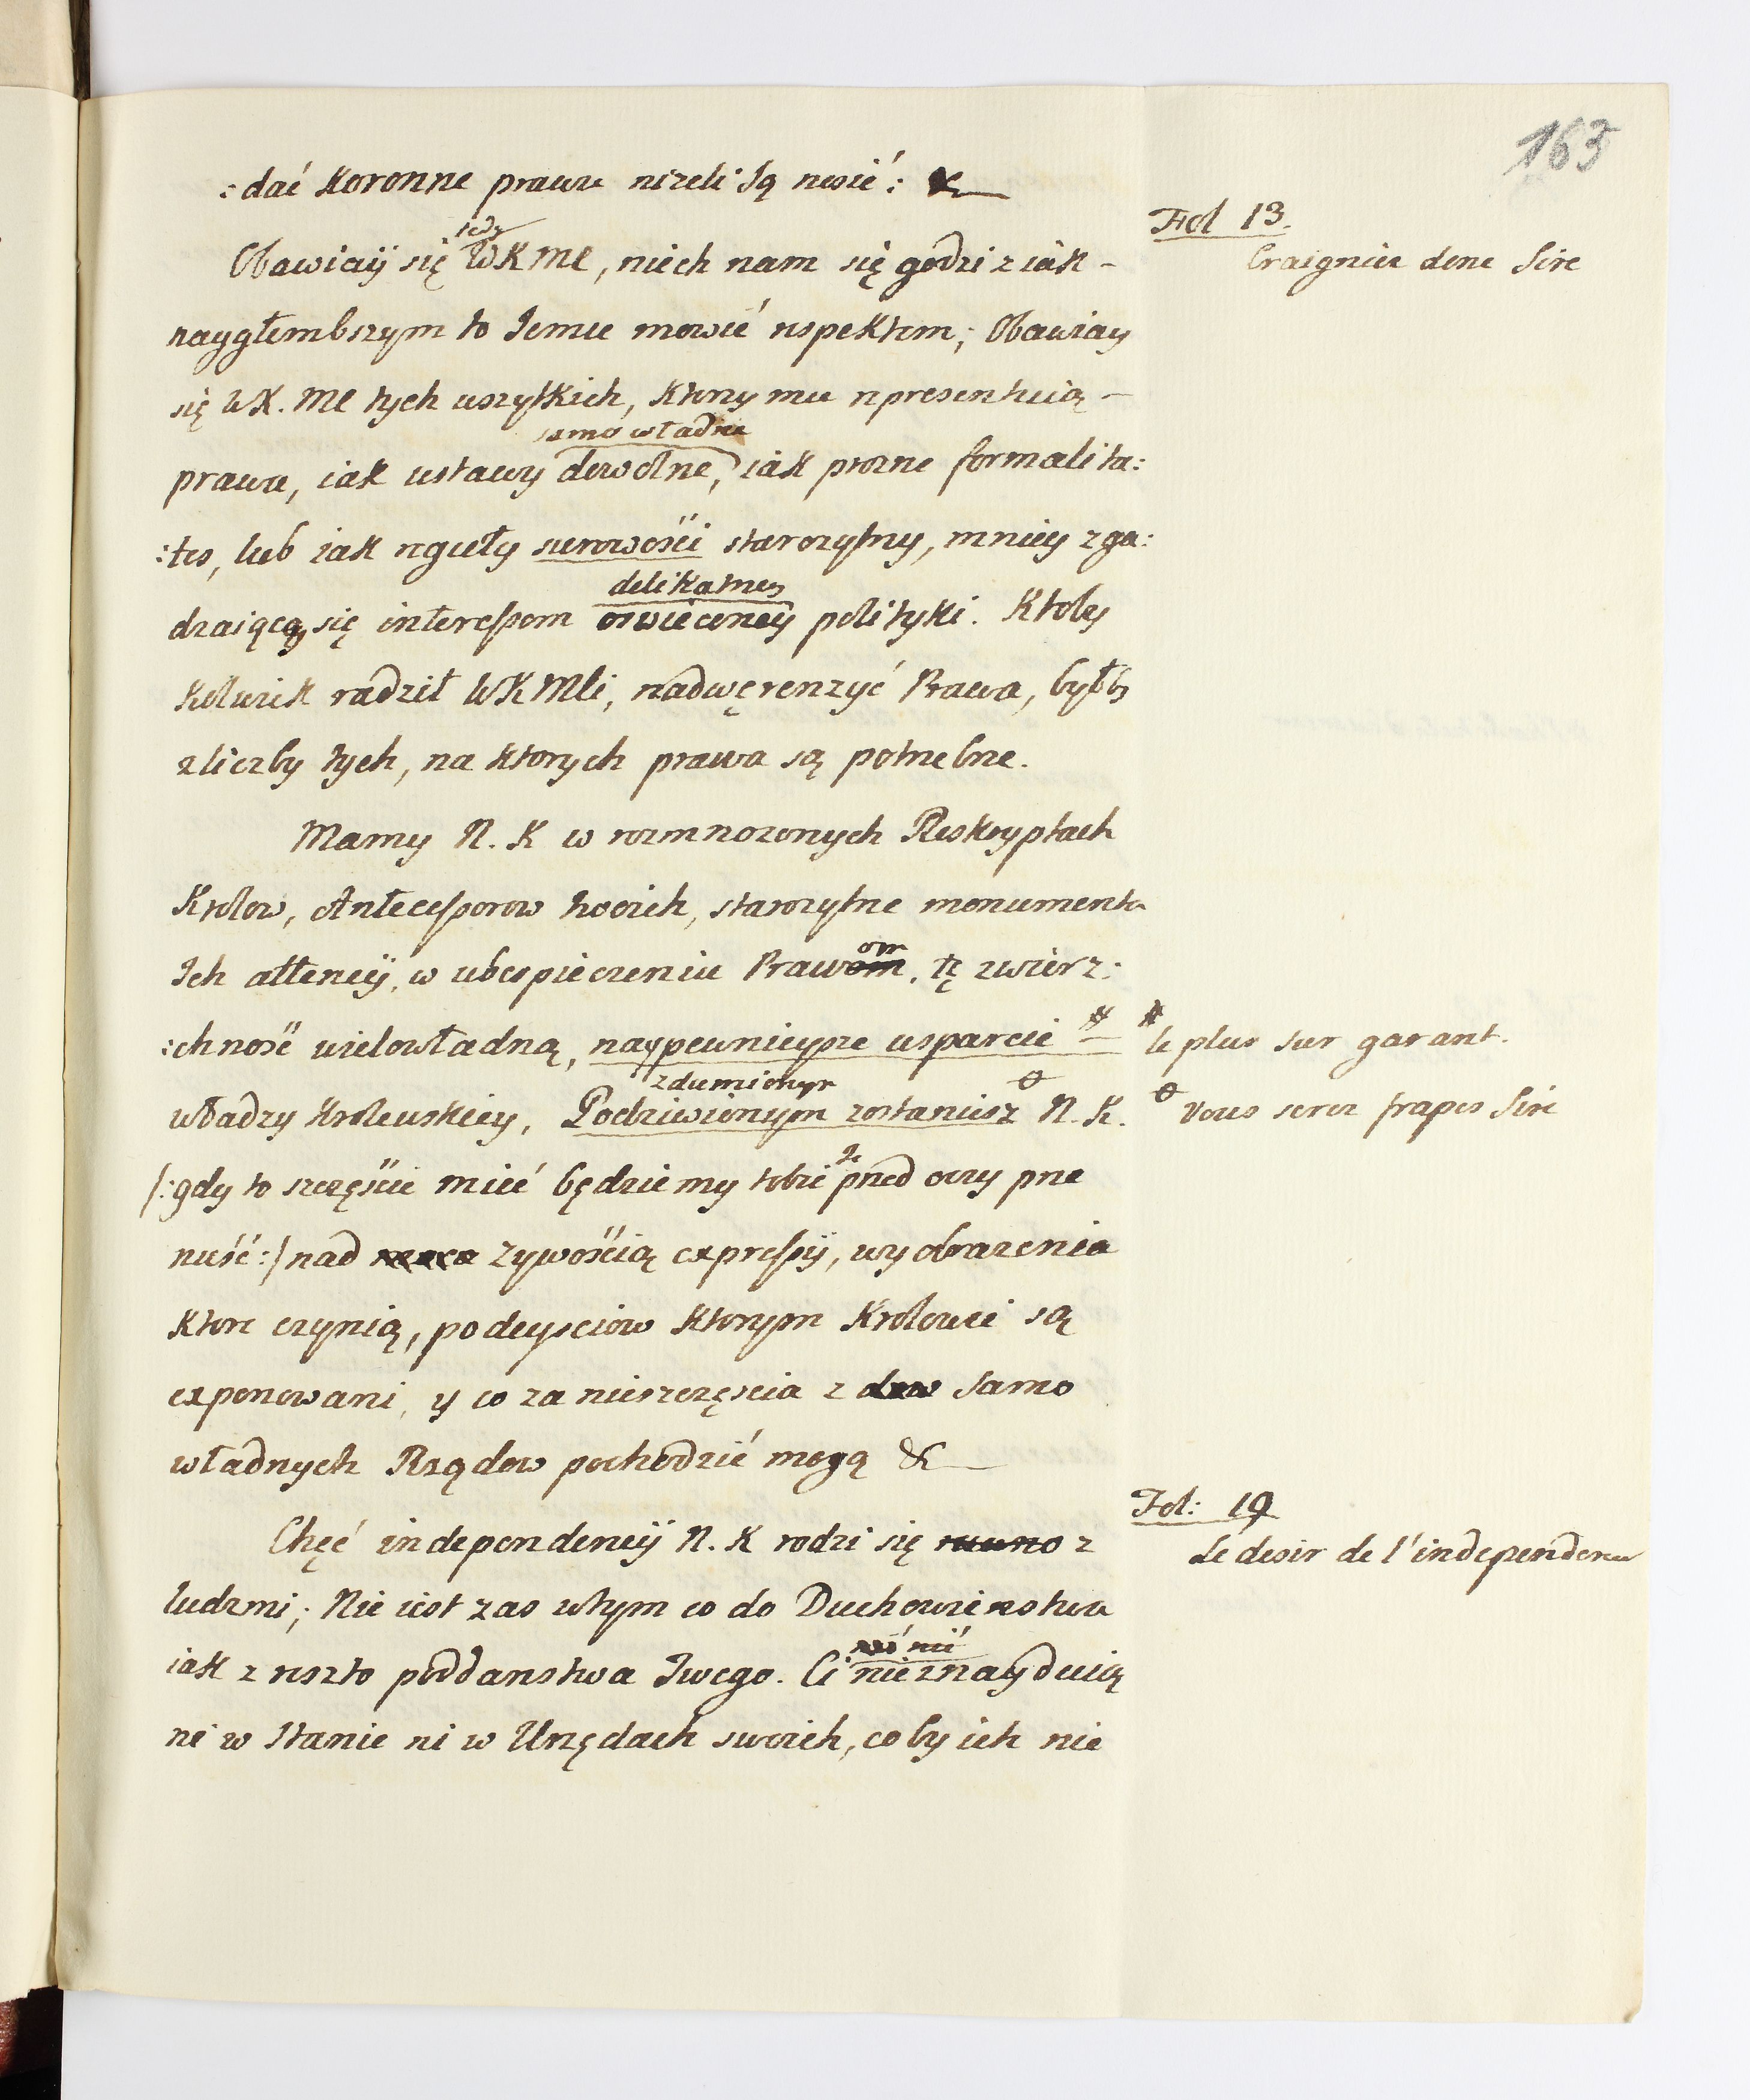 163
:dać Koronne prawa niżeli Ją nosić: &
Fol 13.
Craignier donc Sire
tedy
Obawiaÿ się WKMC, niech nam się godzi z iak-
naygłembszym to Jemu mowić respektem; Obawiay
się WK. MC tych wszytkich, Ktorzy mu representuią -
samowładne
prawa, iak ustawy dowolne, iak prozne formalita:
:tes, lub iak reguły surowości starozytny, mniey zga:
delikatney
dzaiącey się interessom oswieconeÿ polityki. Ktoby
Kolwiek radził WKMCi, nadwęrenzyć Prawa, byłby
z liczby tych, na Ktorych prawa są potrzebne.
Mamy N. K w rozmnozonych Reskryptach
Krolow, Antecessorow twoich, starozytne monumenta
om
Ich attencÿi, w ubespieczeniu Prawom, tę zwierz:
:chność wielowładną, naypewnieysze wsparcie # —
# le plus sur garant.
zdumionym
władzy Krolewskiey, Podziwionym zostaniesz N. K.
Vous serez frapes Sire
/:gdy to szczęście mieć będziemy tobie Je przed oczy prze
nieść:/ nad zywością expressÿi, wyobrazenia
Ktore czynią, podeysciow Ktorym Krolowie są
exponowani, y co za nieszczęscia z samo
władnych Rządow pochodzić mogą &
Fol: 19
Le desir de l'independence
Chęć independencÿi N. K rodzi się rowno z
ludzmi; Nie iest zas w tym co do Duchowienstwa
iak z reszto poddanstwa Twego. Ci nie znayduią
ni w Stanie ni w Urzędach swoich, coby ich nie